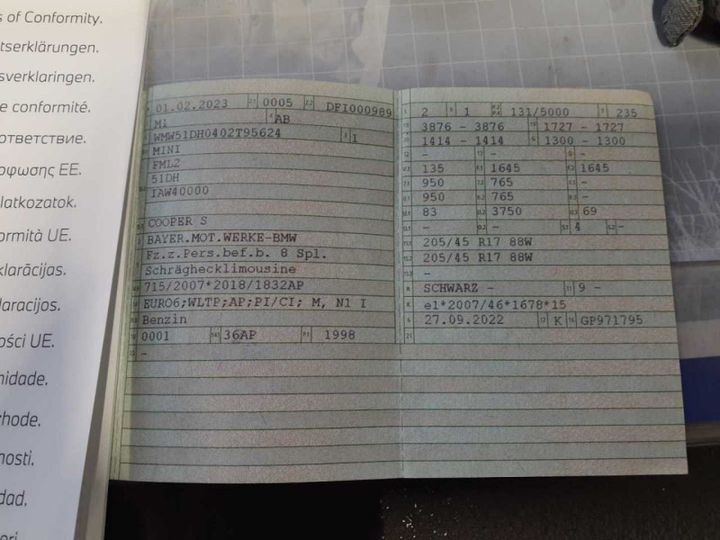 s of Conformity.
tserklärungen.
sverklaringen.
e conformité.
ответствие.
ρφωσης ΕΕ.
latkozatok.
ormità UE.
klarācijas.
laracijos.
ości UE.
nidade.
hode.
nosti.
dad.
01.02.2023 0005 DFI000989
M1 AB
WMW51DH0402T95624 1
MINI
FML2
51DH
IAW40000
COOPER S
BAYER.MOT.WERKE-BMW
Fz.z.Pers.bef.b. 8 Spl.
Schräghecklimousine
715/2007*2018/1832AP
EURO6;WLTP;AP;PI/CI; M, N1 I
Benzin
0001 36AP 1998
-
2 1 131/5000 235
3876 - 3876 1727 - 1727
1414 - 1414 1300 - 1300
- - -
135 1645 1645
950 765 -
950 765 -
83 3750 69
- - 4 -
205/45 R17 88W
205/45 R17 88W
-
SCHWARZ - 9 -
e1*2007/46*1678*15
27.09.2022 K GP971795